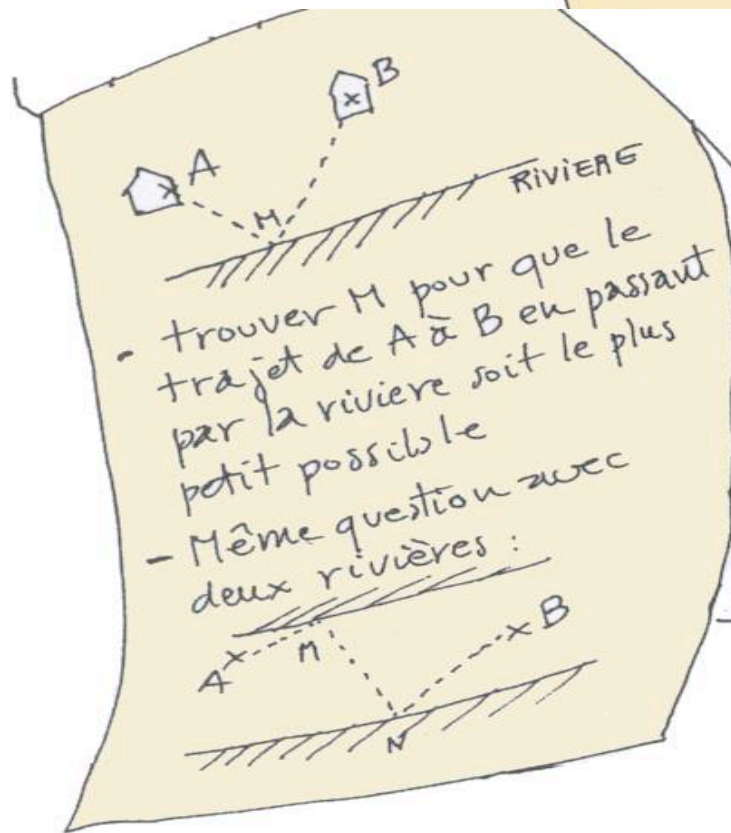 B
A
M
RIVIERE
- trouver M pour que le
trajet de A à B en passant
par la riviere soit le plus
petit possible
- Même question avec
deux rivières :
B
M
A
N